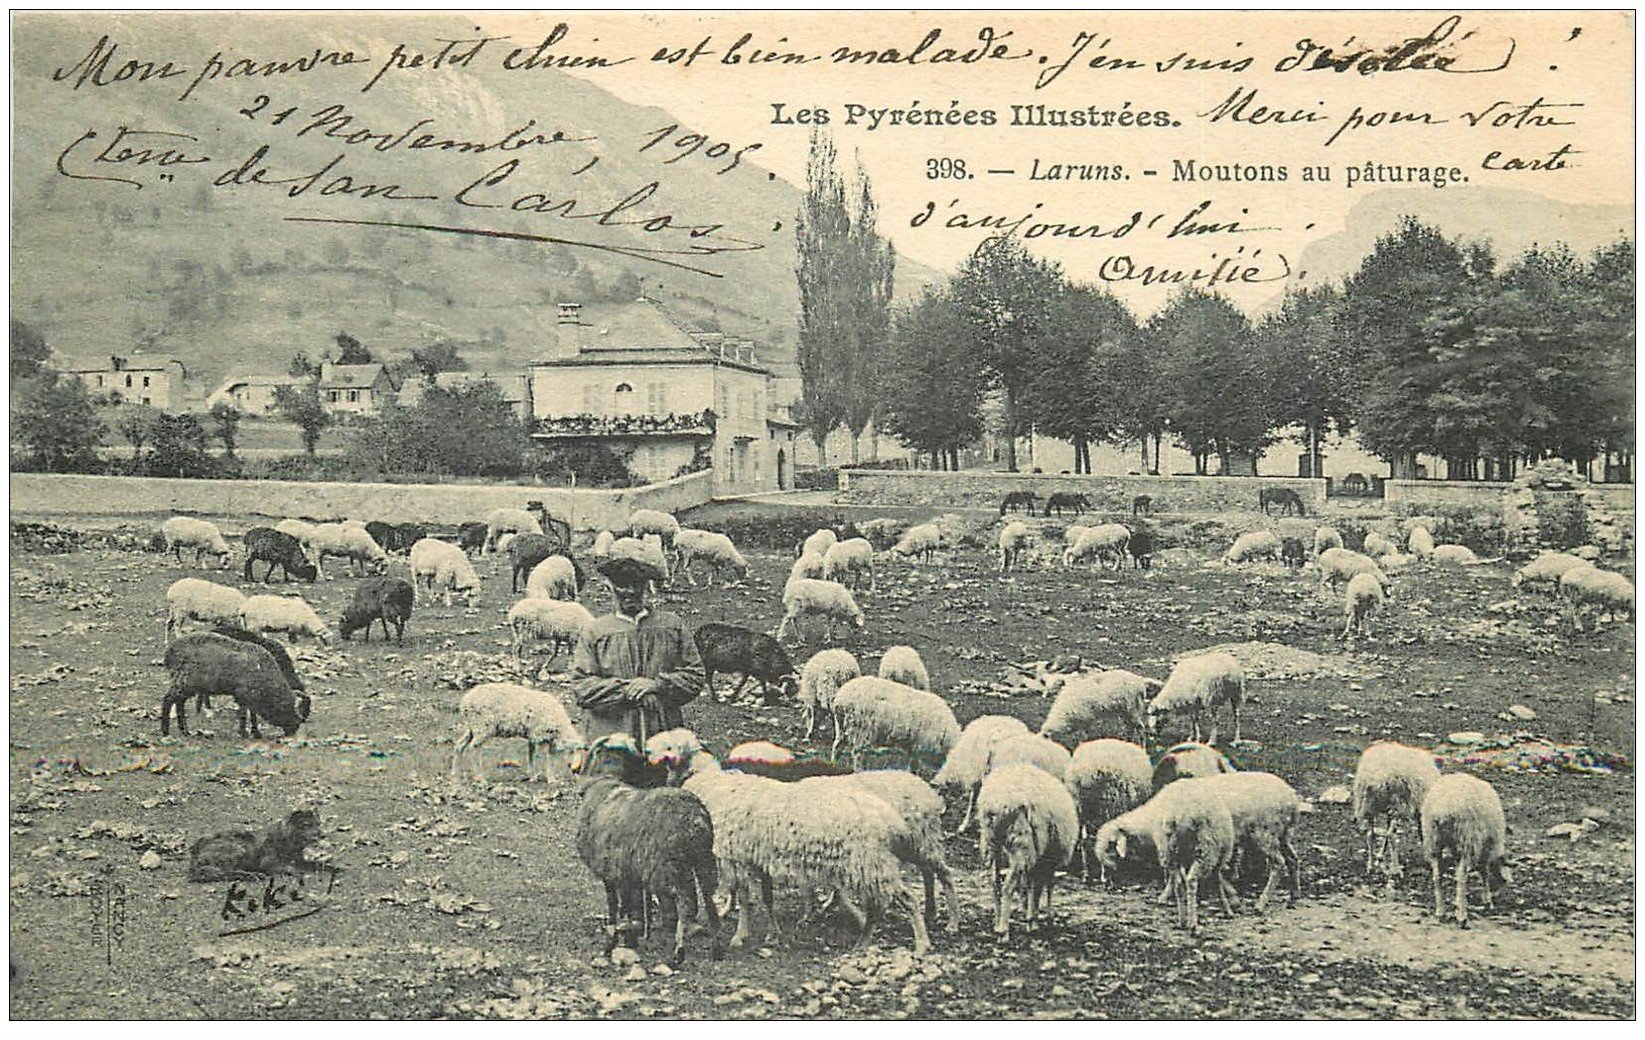 Mon pauvre petit chien est bien malade. J'en suis désolée !
21 Novembre, 1905.
Ctesse de San Carlos
Les Pyrénées Illustrées.
398. — Laruns. - Moutons au pâturage.
Merci pour votre
carte
d'aujourd'hui.
Amitié.
Kiki !
ROYER
NANCY